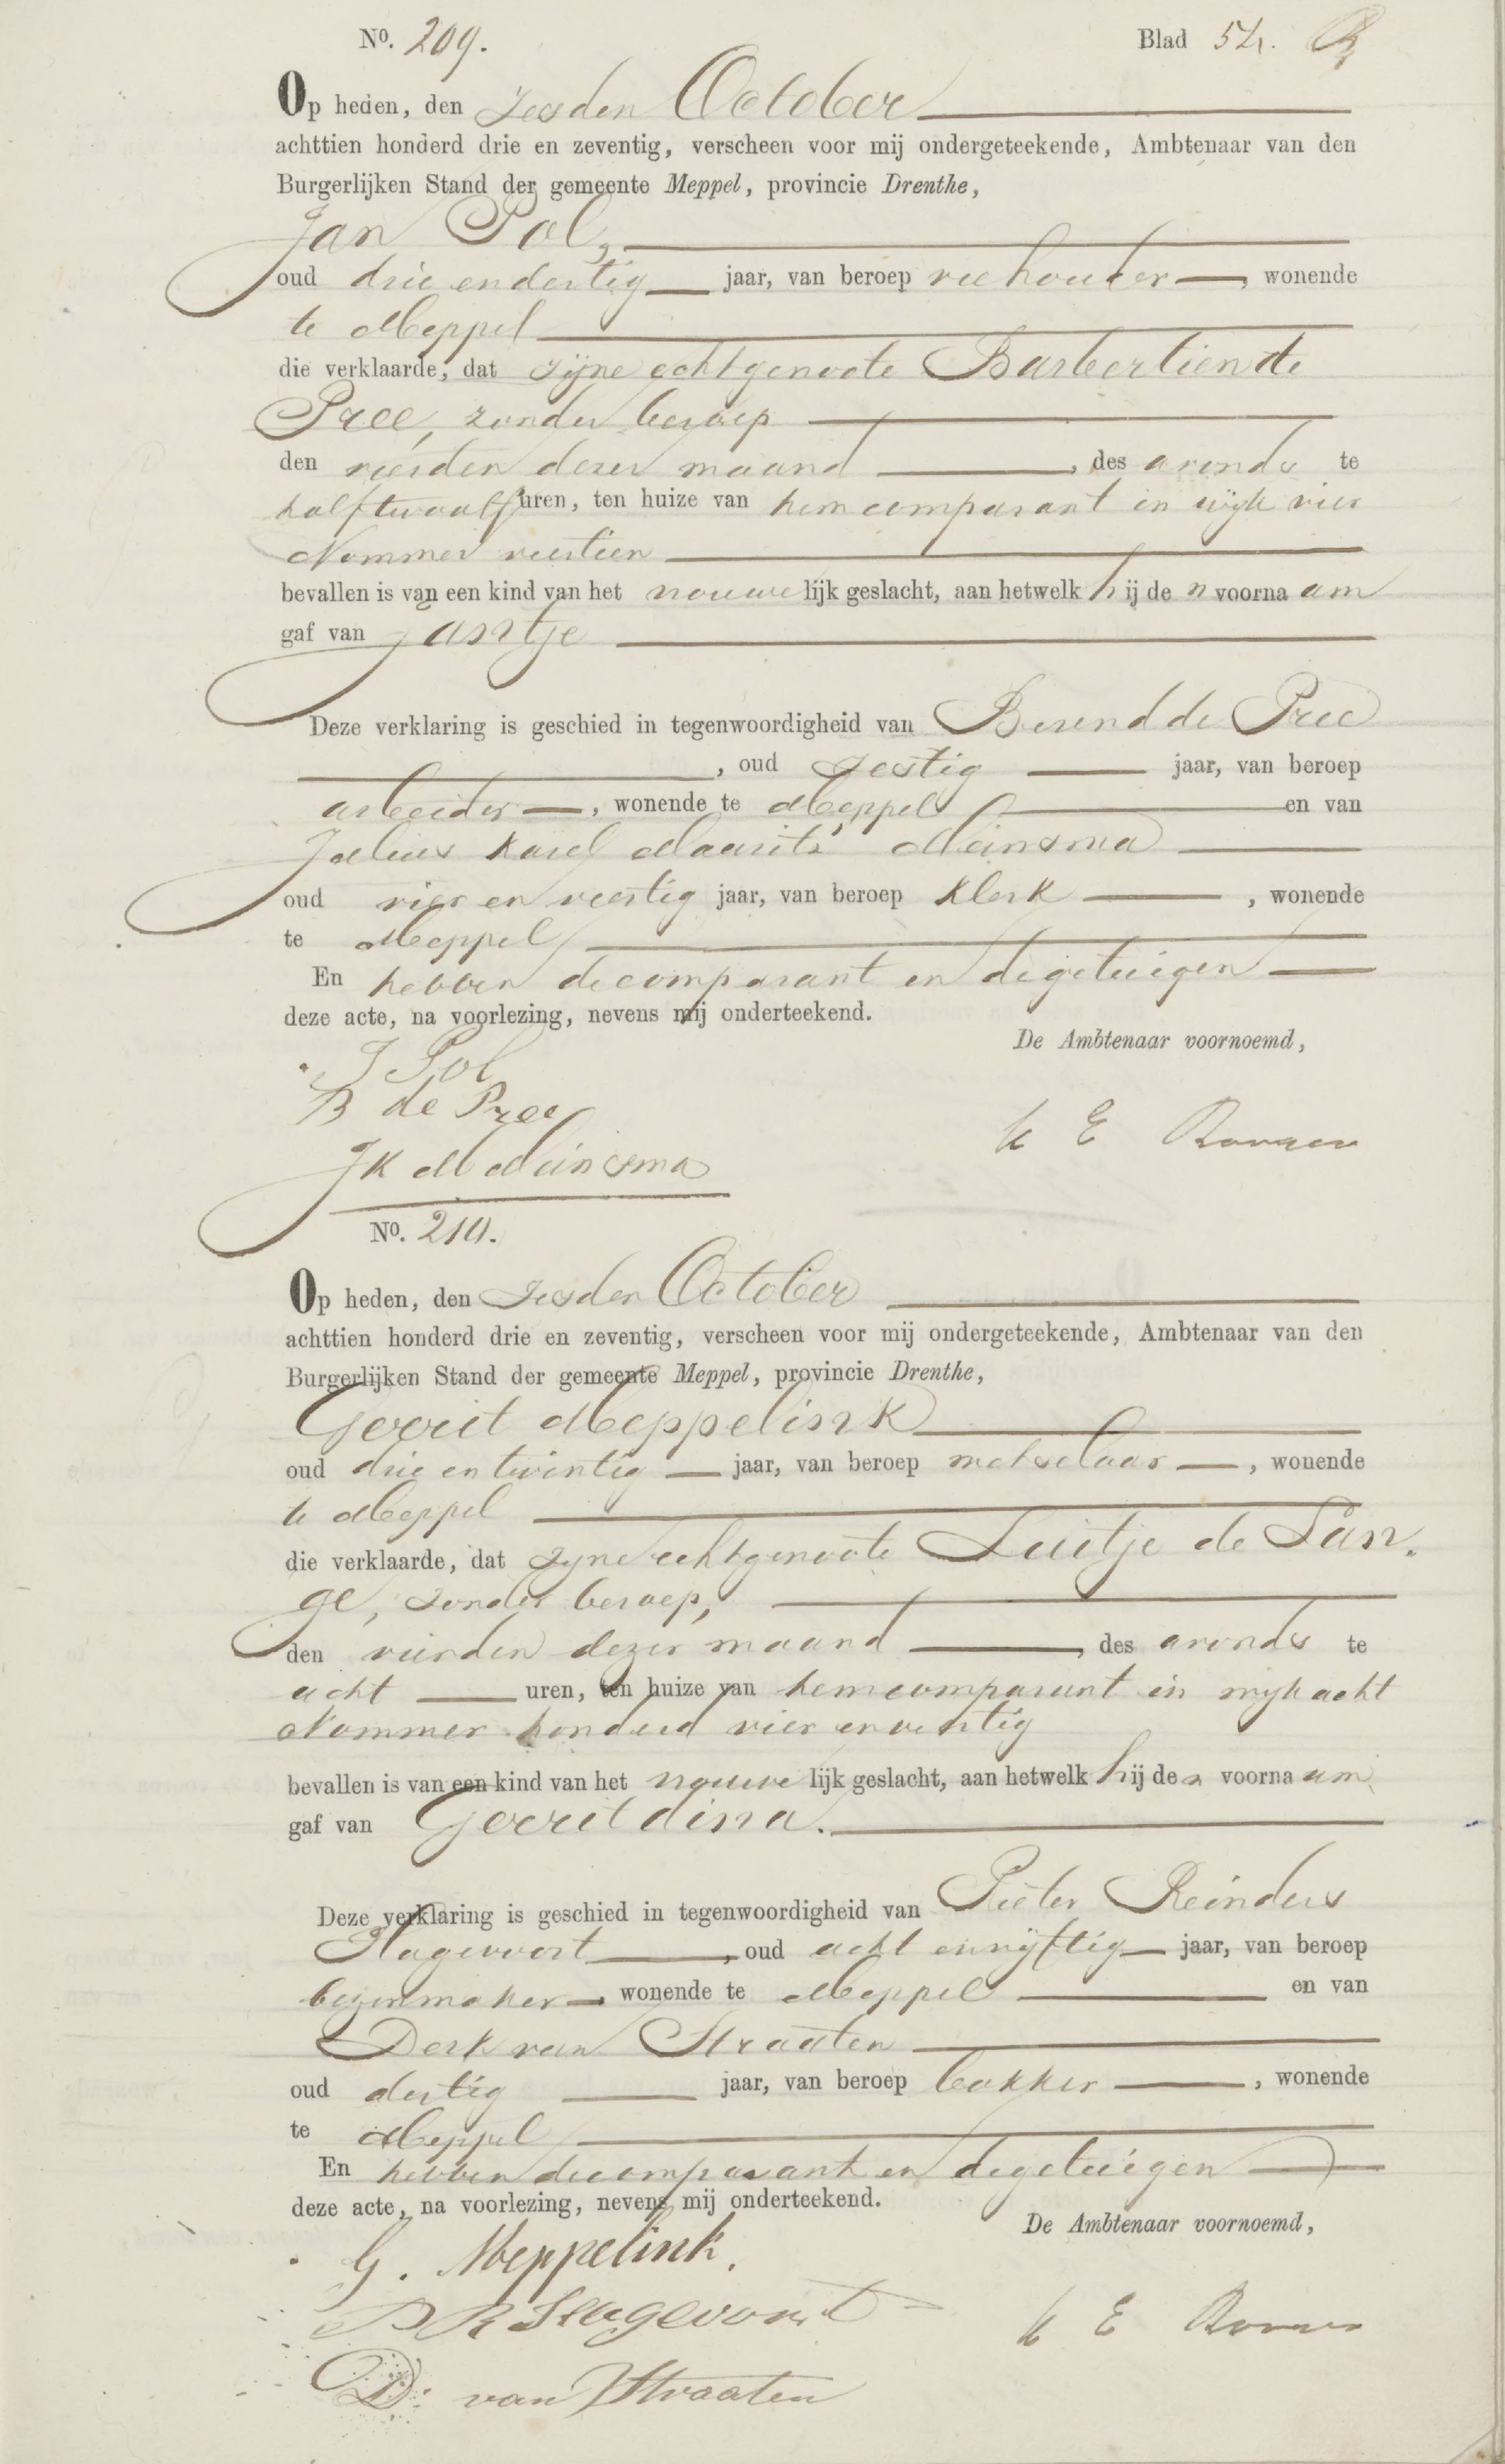 No. 209. Blad 54.
Op heden, den zesden October
achttien honderd drie en zeventig, verscheen voor mij ondergeteekende, Ambtenaar van den
Burgerlijken Stand der gemeente Meppel, provincie Drenthe,
Jan Pol,
oud drie en dertig jaar, van beroep veehouder, wonende
te Meppel
die verklaarde, dat zijne echtgenoote Barbertien de
Pree, zonder beroep
den vierden dezer maand, des avonds te
half twaalf uren, ten huize van hem comparant in wijk vier
Nommer veertien
bevallen is van een kind van het vrouwelijk geslacht, aan hetwelk hij den voornaam
gaf van Jantje
Deze verklaring is geschied in tegenwoordigheid van Berend de Pree
, oud zestig jaar, van beroep
arbeider, wonende te Meppel en van
Julius Karel Maurits Meinsma
oud vier en veertig jaar, van beroep klerk, wonende
te Meppel
En hebben de comparant en de getuigen
deze acte, na voorlezing, nevens mij onderteekend.
De Ambtenaar voornoemd,
J Pol
B de Pree
J K M Meinsma
No. 210.
Op heden, den zesden October
achttien honderd drie en zeventig, verscheen voor mij ondergeteekende, Ambtenaar van den
Burgerlijken Stand der gemeente Meppel, provincie Drenthe,
Gerrit Meppelink
oud drie en twintig jaar, van beroep metselaar, wonende
te Meppel
die verklaarde, dat zyne echtgenoote Luitje de Lan-
ge, zonder beroep,
den vierden dezer maand, des avonds te
acht uren, ten huize van hem comparant in wyk acht
Nommer honderd vier en veertig
bevallen is van een kind van het vrouwelijk geslacht, aan hetwelk hij den voornaam
gaf van Gerritdina.
Deze verklaring is geschied in tegenwoordigheid van Pieter Reinders
Slagevoort, oud acht en vijftig jaar, van beroep
bezenmaker, wonende te Meppel en van
Derk van Straaten
oud dertig jaar, van beroep bakker, wonende
te Meppel
En hebben de comparant en de getuigen
deze acte, na voorlezing, nevens mij onderteekend.
De Ambtenaar voornoemd,
G. Meppelink.
P R Slagevoort
D: van Straaten